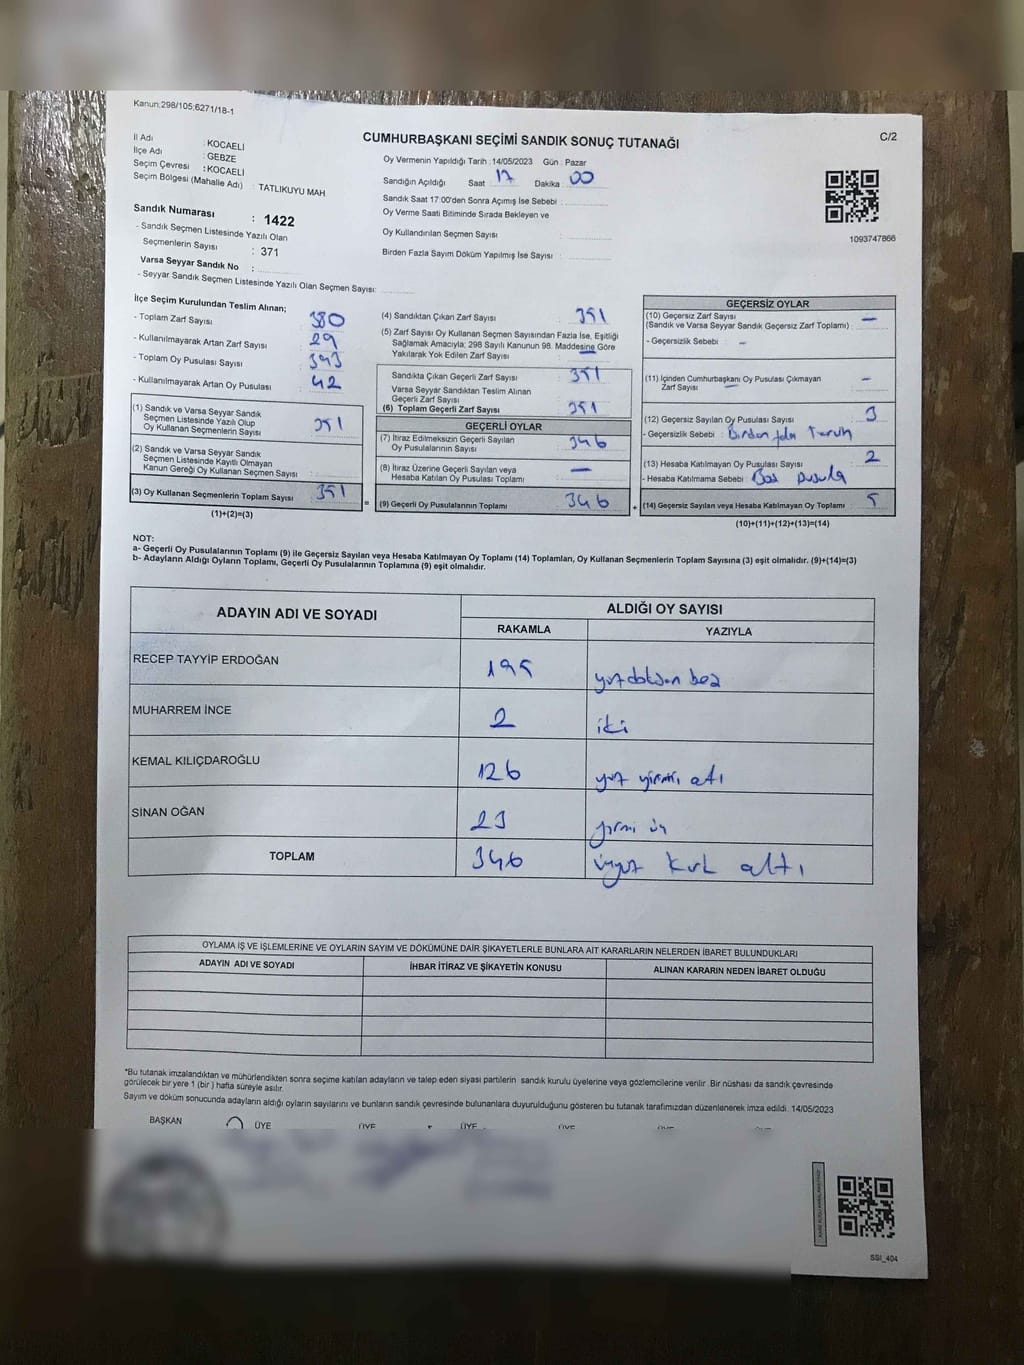 Kanun;298/105;6271/18-1
C/2
CUMHURBAŞKANI SEÇİMİ SANDIK SONUÇ TUTANAĞI
İl Adı : KOCAELİ
İlçe Adı : GEBZE
Seçim Çevresi : KOCAELİ
Seçim Bölgesi (Mahalle Adı) : TATLIKUYU MAH
Sandık Numarası : 1422
- Sandık Seçmen Listesinde Yazılı Olan
Seçmenlerin Sayısı : 371
Varsa Seyyar Sandık No :
- Seyyar Sandık Seçmen Listesinde Yazılı Olan Seçmen Sayısı:
Oy Vermenin Yapıldığı Tarih : 14/05/2023 Gün : Pazar
Sandığın Açıldığı Saat 17 Dakika 00
Sandık Saat 17:00'den Sonra Açımış İse Sebebi :
Oy Verme Saati Bitiminde Sırada Bekleyen ve
Oy Kullandırılan Seçmen Sayısı :
Birden Fazla Sayım Döküm Yapılmış İse Sayısı :
1093747866
İlçe Seçim Kurulundan Teslim Alınan;
- Toplam Zarf Sayısı : 380
- Kullanılmayarak Artan Zarf Sayısı : 29
- Toplam Oy Pusulası Sayısı : 393
- Kullanılmayarak Artan Oy Pusulası : 42
(1) Sandık ve Varsa Seyyar Sandık
Seçmen Listesinde Yazılı Olup
Oy Kullanan Seçmenlerin Sayısı : 351
(2) Sandık ve Varsa Seyyar Sandık
Seçmen Listesinde Kayıtlı Olmayan
Kanun Gereği Oy Kullanan Seçmen Sayısı :
(3) Oy Kullanan Seçmenlerin Toplam Sayısı : 351
(1)+(2)=(3)
=
(4) Sandıktan Çıkan Zarf Sayısı : 351
(5) Zarf Sayısı Oy Kullanan Seçmen Sayısından Fazla İse, Eşitliği
Sağlamak Amacıyla; 298 Sayılı Kanunun 98. Maddesine Göre
Yakılarak Yok Edilen Zarf Sayısı : —
Sandıkta Çıkan Geçerli Zarf Sayısı : 351
Varsa Seyyar Sandıktan Teslim Alınan
Geçerli Zarf Sayısı
(6) Toplam Geçerli Zarf Sayısı : 351
GEÇERLİ OYLAR
(7) İtiraz Edilmeksizin Geçerli Sayılan
Oy Pusulalarının Sayısı : 346
(8) İtiraz Üzerine Geçerli Sayılan veya
Hesaba Katılan Oy Pusulası Toplamı : —
(9) Geçerli Oy Pusulalarının Toplamı : 346
+
GEÇERSİZ OYLAR
(10) Geçersiz Zarf Sayısı : —
(Sandık ve Varsa Seyyar Sandık Geçersiz Zarf Toplamı)
- Geçersizlik Sebebi : —
(11) İçinden Cumhurbaşkanı Oy Pusulası Çıkmayan
Zarf Sayısı : —
(12) Geçersiz Sayılan Oy Pusulası Sayısı : 3
- Geçersizlik Sebebi : Birden fazla Tercih
(13) Hesaba Katılmayan Oy Pusulası Sayısı : 2
- Hesaba Katılmama Sebebi : Boş pusula
(14) Geçersiz Sayılan veya Hesaba Katılmayan Oy Toplamı : 5
(10)+(11)+(12)+(13)=(14)
NOT:
a- Geçerli Oy Pusulalarının Toplamı (9) ile Geçersiz Sayılan veya Hesaba Katılmayan Oy Toplamı (14) Toplamları, Oy Kullanan Seçmenlerin Toplam Sayısına (3) eşit olmalıdır. (9)+(14)=(3)
b- Adayların Aldığı Oyların Toplamı, Geçerli Oy Pusulalarının Toplamına (9) eşit olmalıdır.
ADAYIN ADI VE SOYADI ALDIĞI OY SAYISI
RAKAMLA YAZIYLA
RECEP TAYYİP ERDOĞAN 195 yüzdoksan beş
MUHARREM İNCE 2 iki
KEMAL KILIÇDAROĞLU 126 yüz yirmi altı
SİNAN OĞAN 23 yirmi üç
TOPLAM 346 üçyüz kırk altı
OYLAMA İŞ VE İŞLEMLERİNE VE OYLARIN SAYIM VE DÖKÜMÜNE DAİR ŞİKAYETLERLE BUNLARA AİT KARARLARIN NELERDEN İBARET BULUNDUKLARI
ADAYIN ADI VE SOYADI İHBAR İTİRAZ VE ŞİKAYETİN KONUSU ALINAN KARARIN NEDEN İBARET OLDUĞU
*Bu tutanak imzalandıktan ve mühürlendikten sonra seçime katılan adayların ve talep eden siyasi partilerin sandık kurulu üyelerine veya gözlemcilerine verilir. Bir nüshası da sandık çevresinde
görülecek bir yere 1 (bir ) hafta süreyle asılır.
Sayım ve döküm sonucunda adayların aldığı oyların sayılarını ve bunların sandık çevresinde bulunanlara duyurulduğunu gösteren bu tutanak tarafımızdan düzenlenerek imza edildi. 14/05/2023
BAŞKAN ÜYE ÜYE ÜYE ÜYE
SSI_404